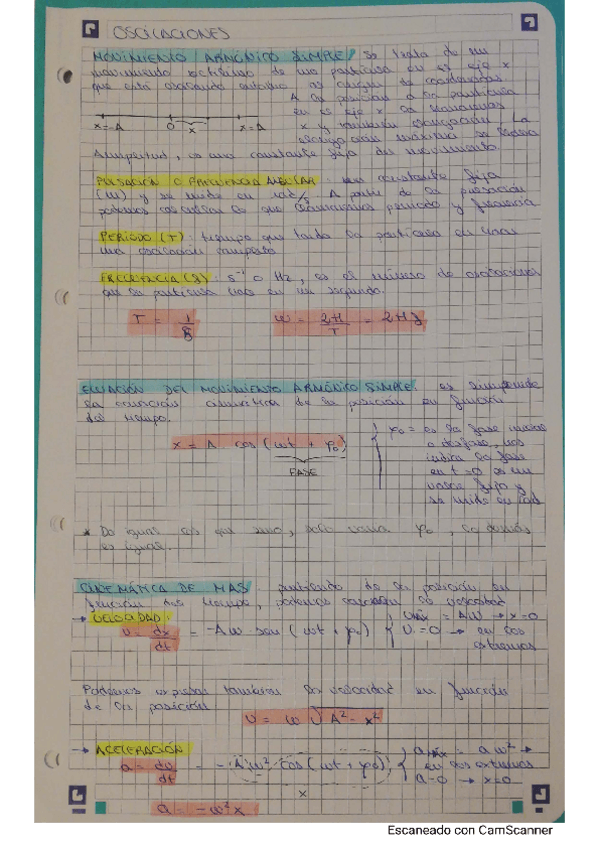 OSCILACIONES
MOVIMIENTO ARMÓNICO SIMPLE: Se trata de un
movimiento rectilíneo de una partícula en el eje x
que está oscilando entorno al origen de coordenadas
A la posición de la partícula
en el eje x la llamamos
x=-A 0 x x=A
x y también elongación. La
elongación máxima se llama
Amplitud, es una constante fija del movimiento.
PULSACIÓN O FRECUENCIA ANGULAR: una constante fija
(W) y se mide en rad/s. A partir de la pulsación
podemos calcular lo que llamamos período y frecuencia
PERIODO (T): tiempo que tarda la partícula en hacer
una oscilación completa
FRECUENCIA (f): s⁻¹ o Hz, es el número de oscilaciones
que la partícula hace en un segundo.
T = 1/f w = 2π/T = 2πf
ECUACIÓN DEL MOVIMIENTO ARMÓNICO SIMPLE: es simplemente
la ecuación cinemática de la posición en función
del tiempo.
x = A · cos (wt + φ₀)
FASE
φ₀ = es la fase inicial
o desfase, nos
indica la fase
en t=0 es un
valor fijo y
se mide en rad
* Da igual cos que seno, solo varía φ₀, lo demás
es igual.
CINEMÁTICA DE MAS: partiendo de la posición en
función del tiempo, podemos calcular la velocidad
→ VELOCIDAD:
v = dx/dt = -Aw sen (wt + φ₀) { Vmáx = Aw → x=0
V=0 → en los
extremos
Podemos expresar también la velocidad en función
de la posición
v = w √A² - x²
→ ACELERACIÓN
a = dv/dt = -Aw² cos (wt + φ₀) { amáx = aw² →
en los extremos
a=0 → x=0
x
a = -w²x
Escaneado con CamScanner